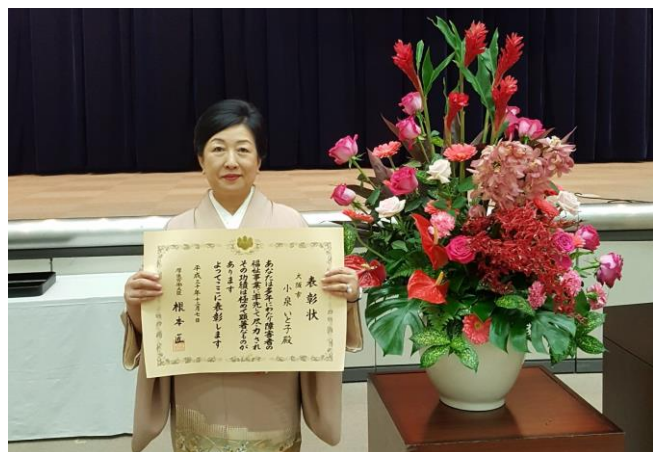 表彰状
大阪市
小泉いと子殿
あなたは多年にわたり障害者の
福祉事業に率先して尽力され
その功績は極めて顕著なものが
あります
よってここに表彰します
平成三十年十二月七日
厚生労働大臣 根本 匠